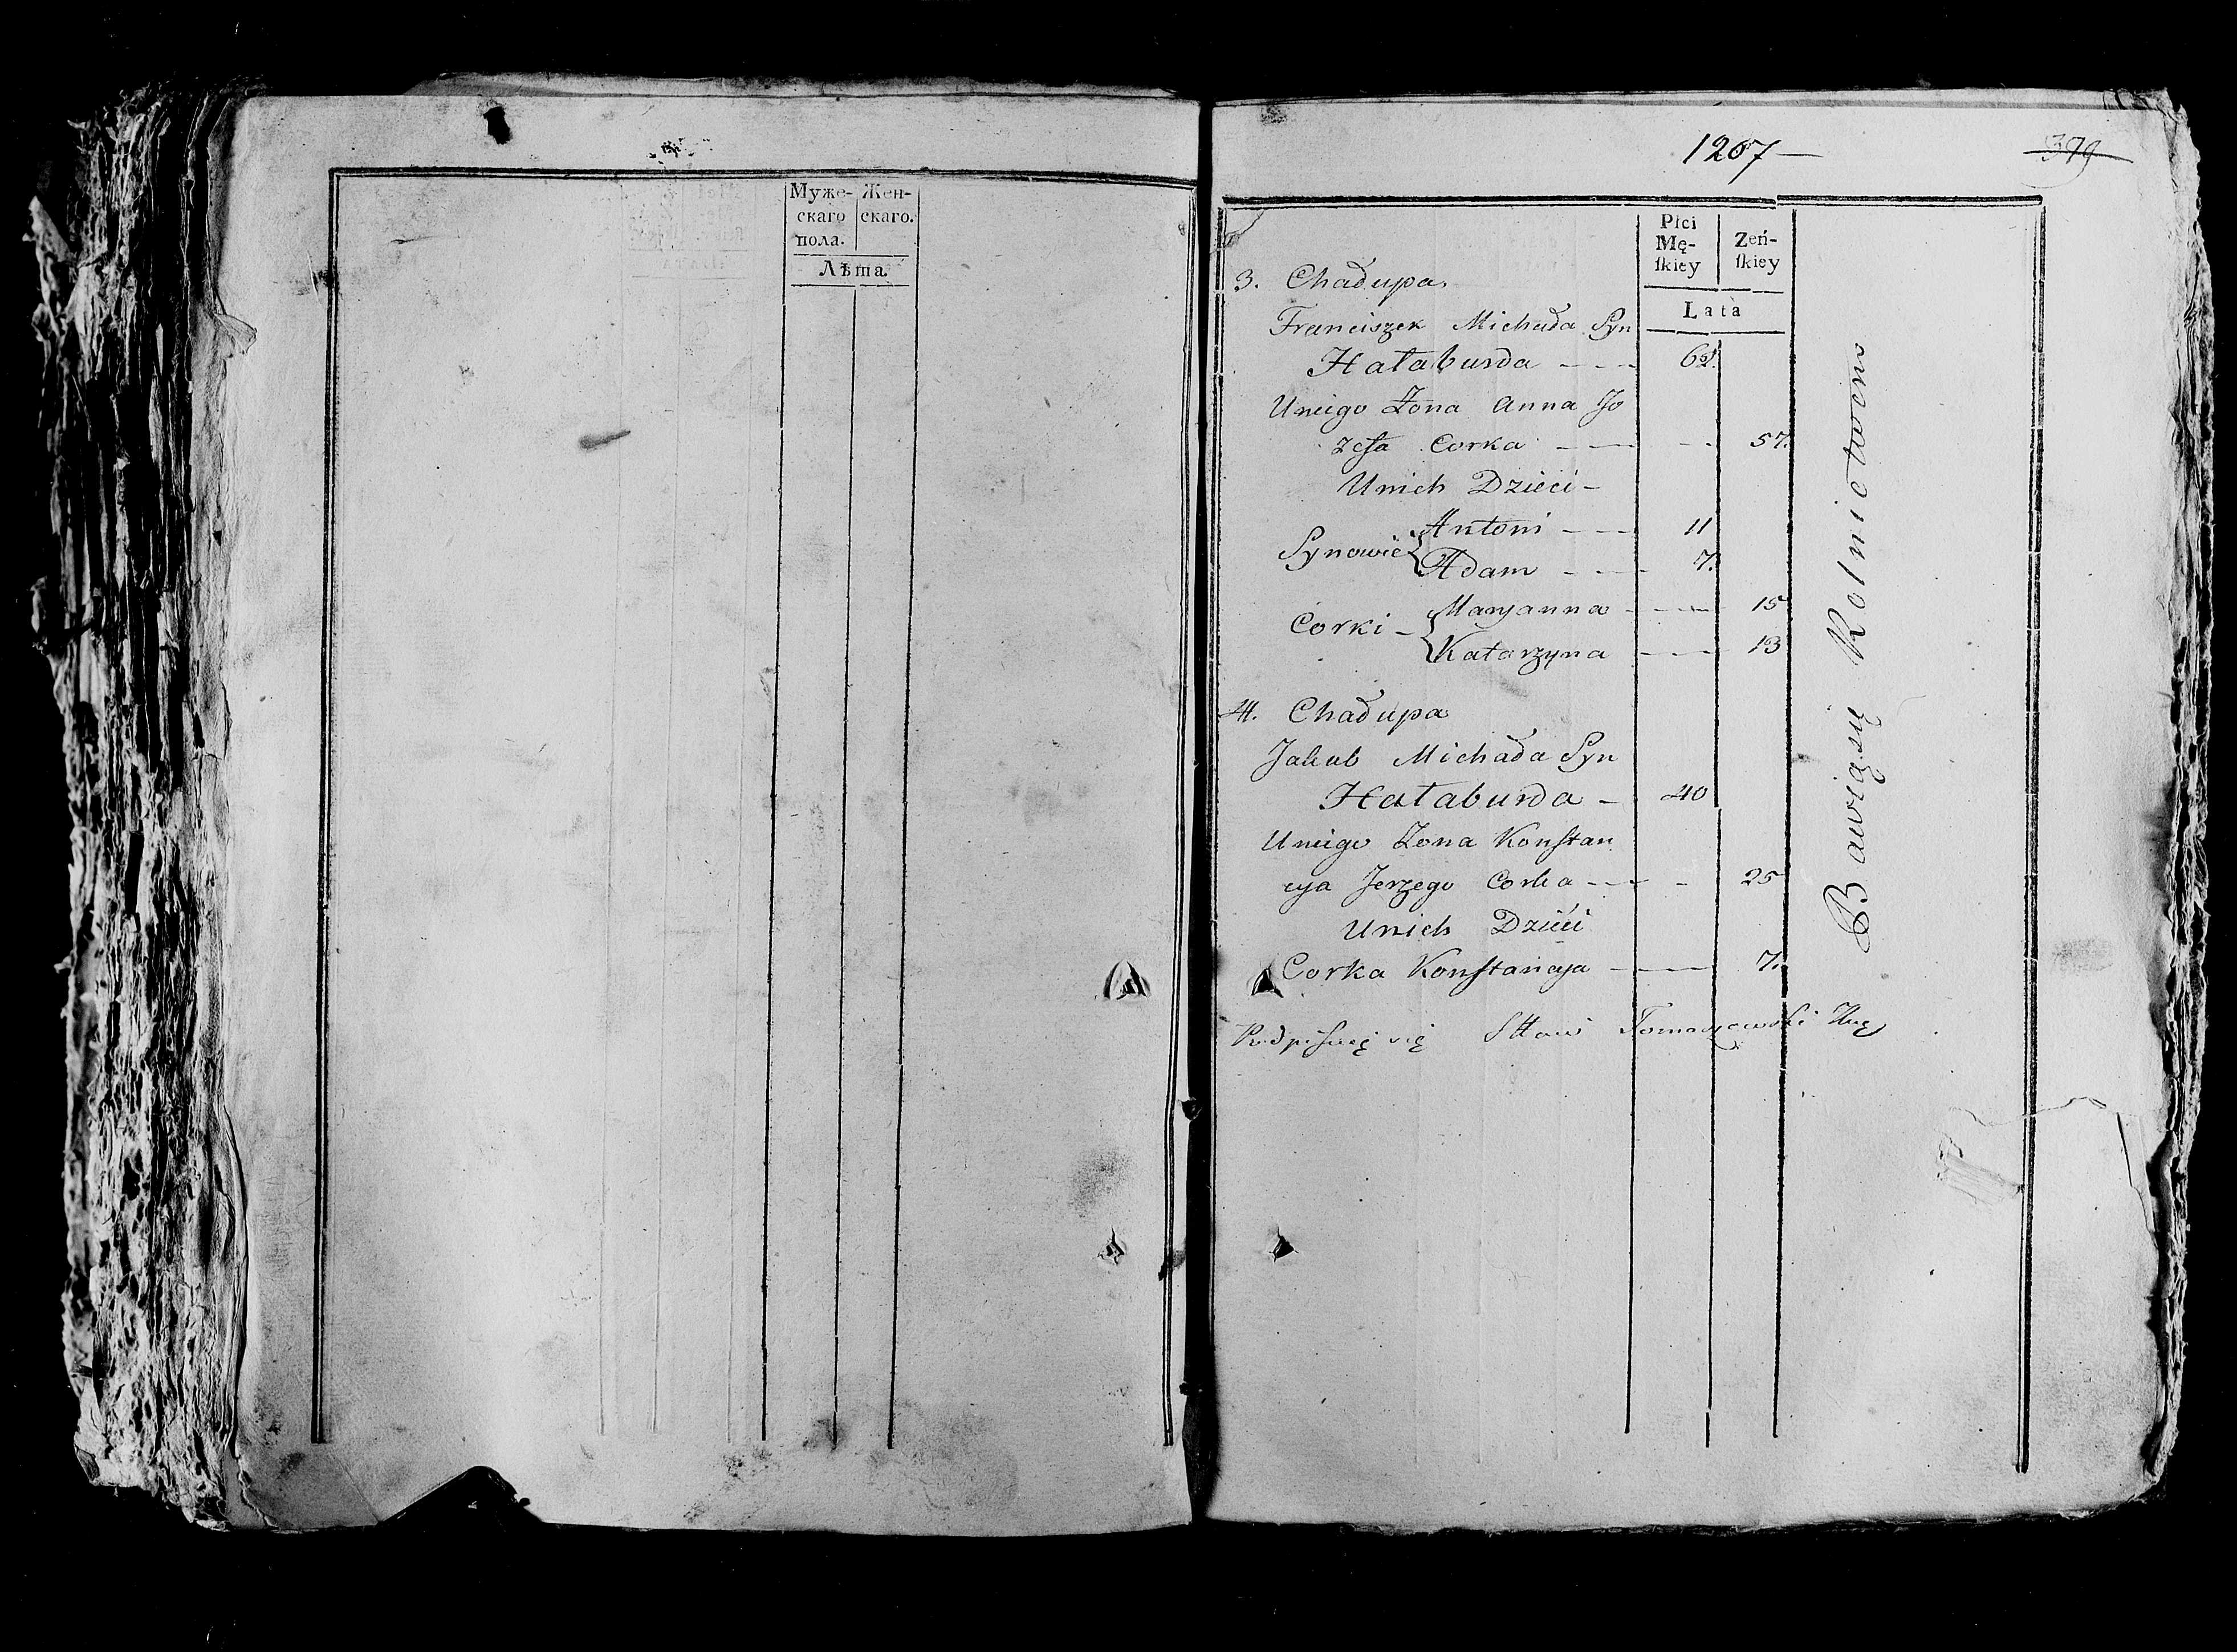 Муже- Жен-
скаго скаго.
пола.
Лѣта
1207 —
379
Płci
Mę- Zeń-
ſkiey ſkiey
Lata
3. Chałupa
Franciszek Michała Syn
Hałaburda — 62.
Uniego Żona Anna Jo
zefa Corka — 57.
Unich Dzieci —
Synowie { Antoni — 11
Adam — 7.
Corki — { Maryanna — 15
Katarzyna — 13
4. Chałupa
Jakub Michała Syn
Hałaburda — 40
Uniego Żona Konſtan
cya Jerzego Corka — 25
Unich Dzieci
Corka Konſtancya — 7.
Bawią się Rolnictwem
Podpiſuię się Tomaszewski